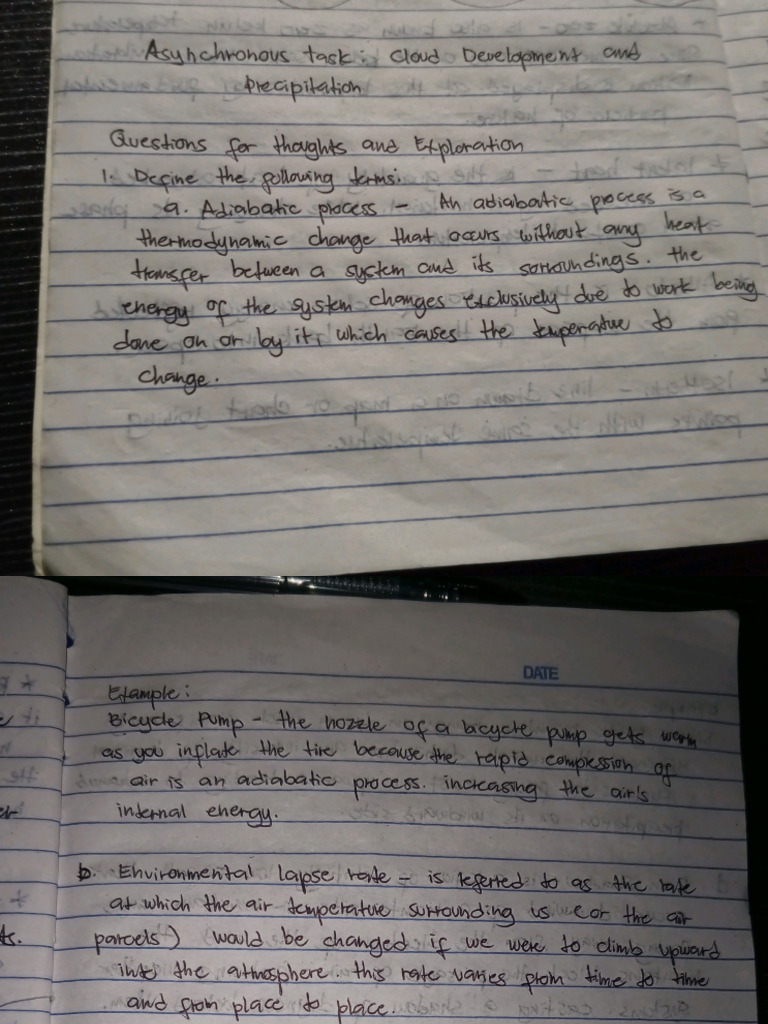 Asynchronous task: Cloud Development and
Precipitation
Questions for thoughts and Exploration
1. Define the following terms:
a. Adiabatic process – An adiabatic process is a
thermodynamic change that occurs without any heat
transfer between a system and its sorroundings. the
energy of the system changes exclusively due to work being
done on or by it, which causes the temperature to
change.
DATE
Example:
Bicycle Pump – the nozzle of a bicycle pump gets warm
as you inflate the tire because the rapid compession of
air is an adiabatic process. increasing the air's
internal energy.
b. Environmental lapse rate – is referred to as the rate
at which the air temperature surrounding us (or the air
parcels) would be changed if we were to climb upward
into the atmosphere. this rate varies from time to time
and from place to place.